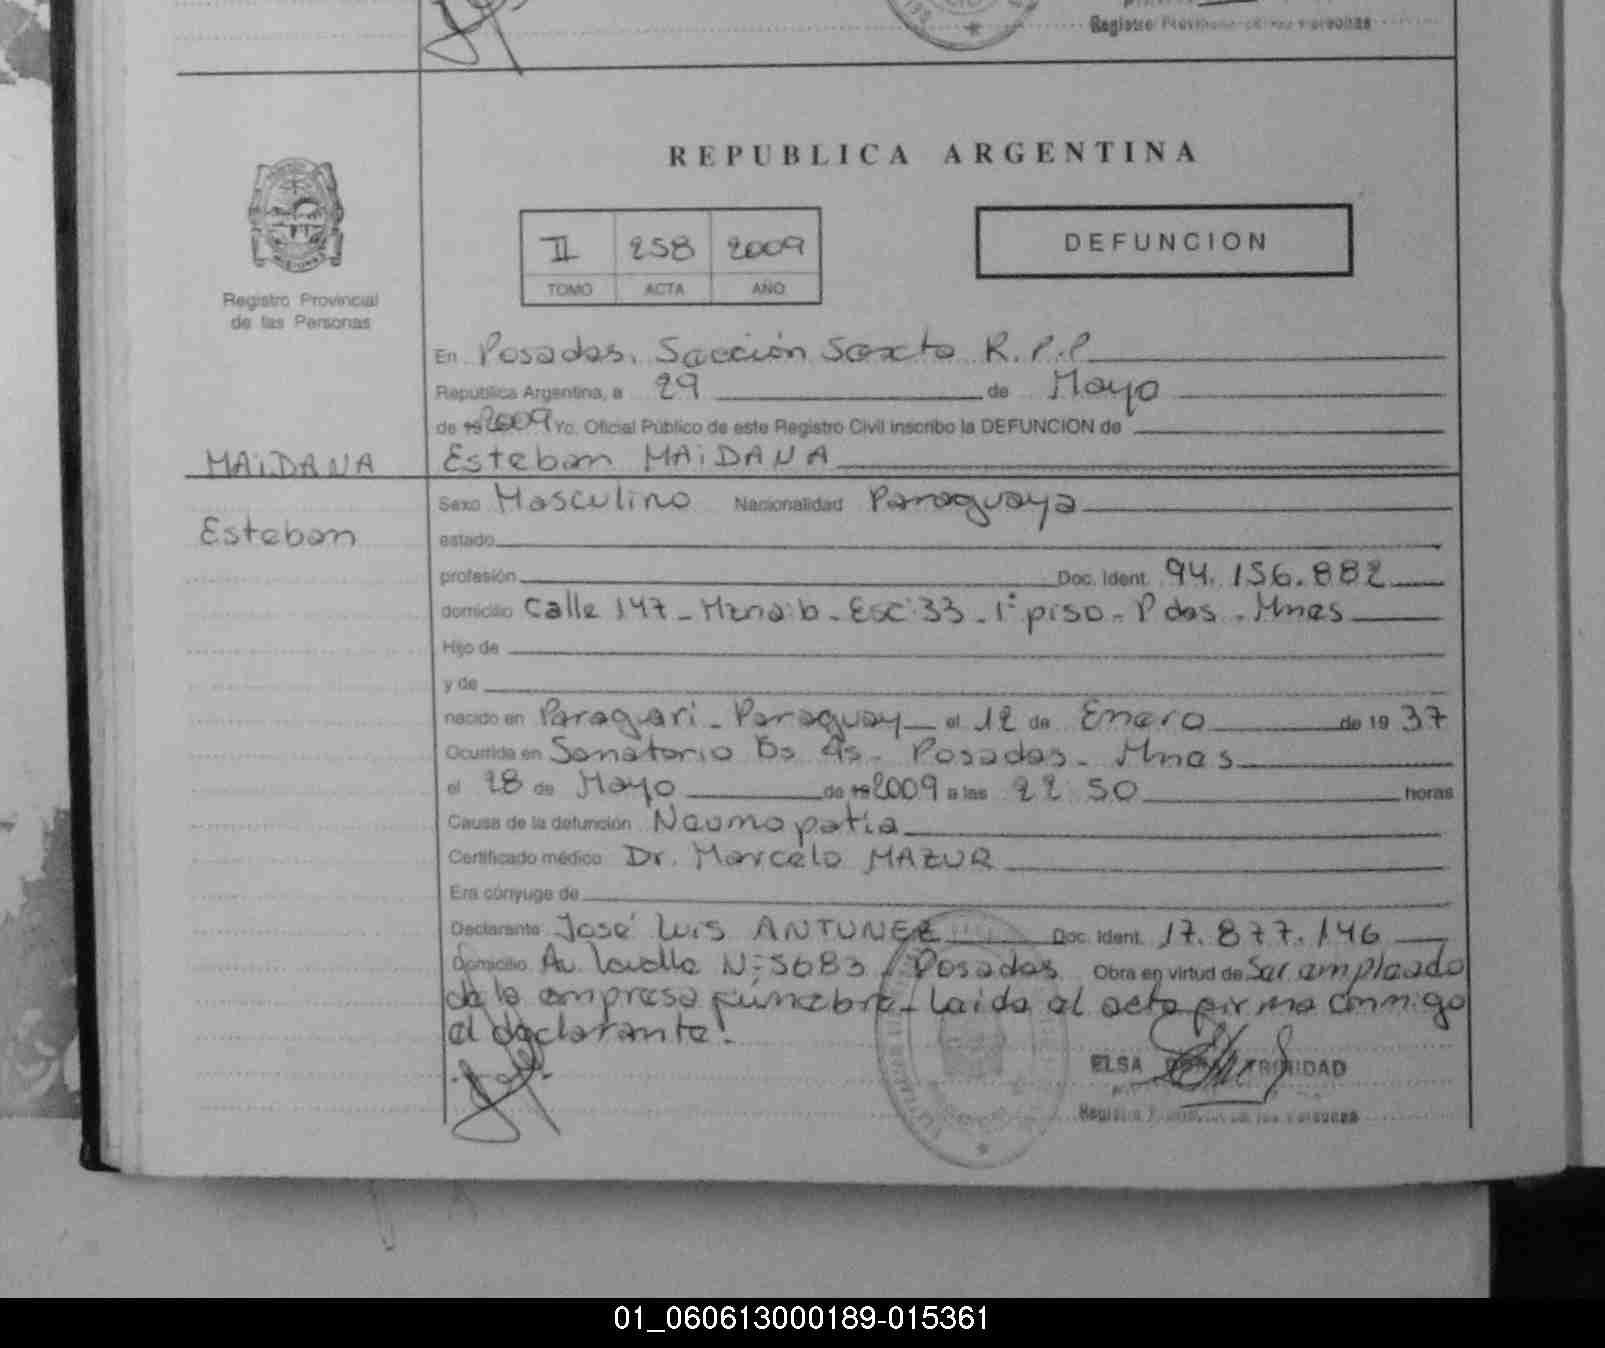 Registro Provincial de las Personas
REPUBLICA ARGENTINA
II 258 2009
TOMO ACTA AÑO
DEFUNCION
Registro Provincial
de las Personas
En Posadas, Sección Sexta R.P.P
República Argentina, a 29 de Mayo
de 19 2009 Yo, Oficial Público de este Registro Civil inscribo la DEFUNCION de
MAiDANA Esteban MAiDANA
Sexo Masculino Nacionalidad Paraguaya
Esteban
estado
profesión Doc. Ident. 94.156.882
domicilio Calle 147 - Mzna: b - Esc: 33 - 1° piso - Pdas - Mnes
Hijo de
y de
nacido en Paraguari - Paraguay el 12 de Enero de 19 37
Ocurrida en Sanatorio Bs As - Posadas - Mnes
el 28 de Mayo de 19 2009 a las 22 50 horas
Causa de la defunción Neumopatia
Certificado médico Dr. Marcelo MAZUR
Era cónyuge de
Declarante José Luis ANTUNEZ Doc. Ident. 17.877.146
Domicilio Av. Lavalle N° 5683 / Posadas Obra en virtud de Ser empleado
de la empresa fúnebre - Leida el acta firma conmigo
el declarante!
ELSA TRINIDAD
Registro de las Personas
01_060613000189-015361